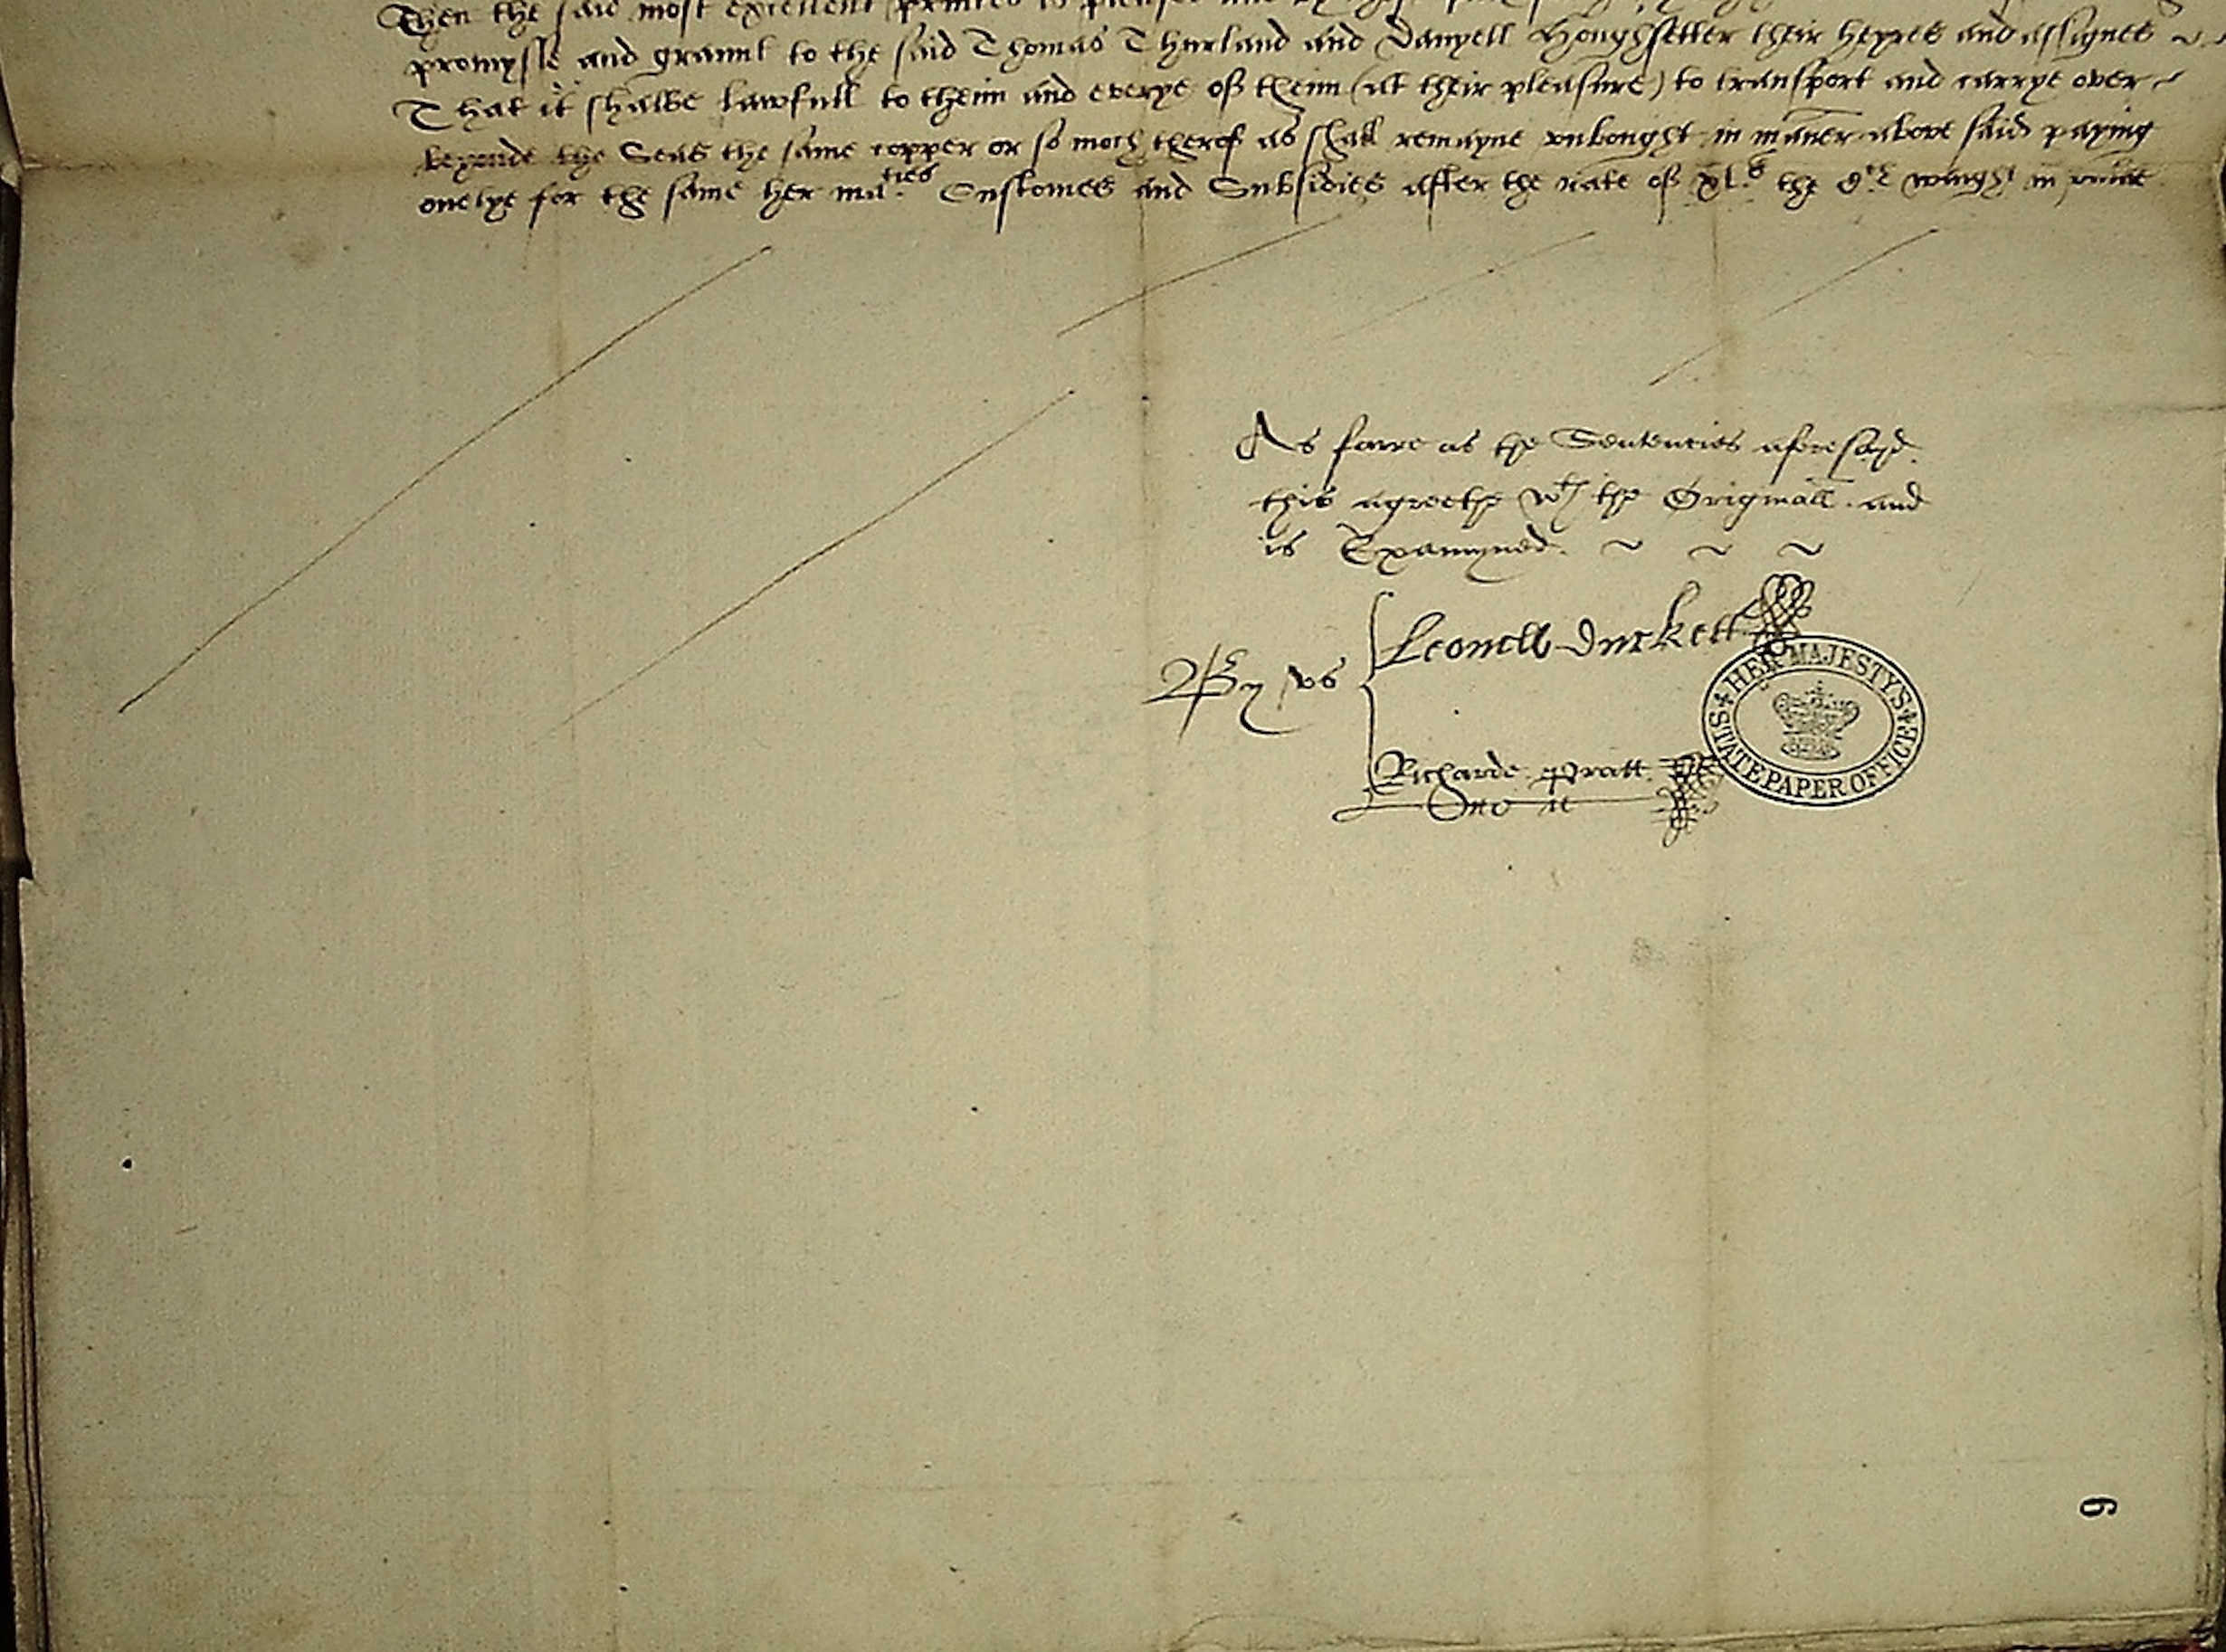 Then the said most excellent princes is pleased and
promysse and graunt to the said Thomas Thurland and Danyell Houghsetter their heyres and assignes
That it shalbe lawfull to theim and everye of theim (at their pleasure) to transport and carrye over
beyonde the Seas the same copper or so moch therof as shall remayne unbought in maner above said paying
onelye for the same her ma.ties Customes and Subsidies after the rate of xl.s the weight in
As farre as the Sentencies aforesayd
this agreethe wth the Originall and
is Examyned.
By us
Leonell Duckett
Richarde Pratt
HER MAJESTY'S
STATE PAPER OFFICE
9